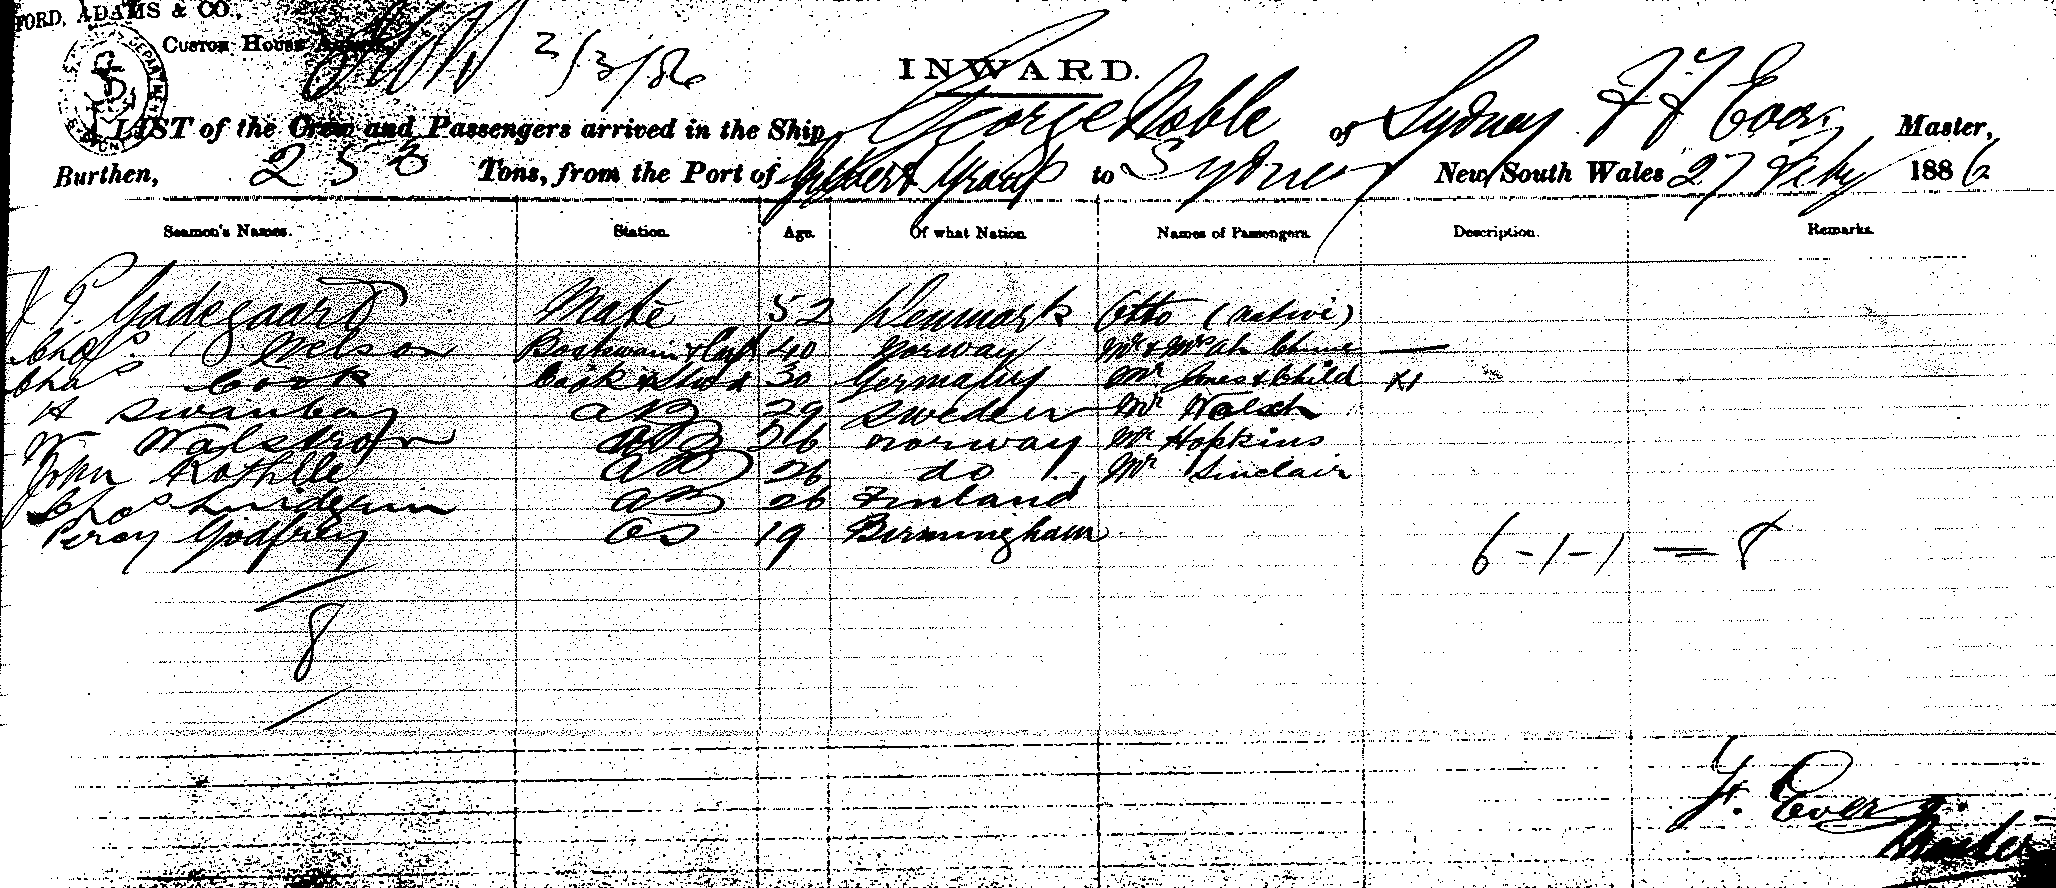 FORD, ADAMS & CO.,
CUSTOM HOUSE
2/3/86
INWARD.
LIST of the Crew and Passengers arrived in the Ship George Noble of Sydney Master,
Burthen, 253 Tons, from the Port of Gilbert Group to Sydney New South Wales 27 Feby 1886
Seamen's Names. Station. Age. Of what Nation. Names of Passengers. Description. Remarks.
J P Gadegaard Mate 52 Denmark Otto (native)
Chas. Nelson Boatswain & 40 Norway Mr & Mrs
Chas Cook Cook & Std 30 Germany Mrs Jones & Child
H Swanberg AB 29 Sweden Mr Walsh
W Walstrom AB Norway Mr Hopkins
John AB 26 do Mr Sinclair
Chas AB 26 Finland
Percy Godfrey OS 19 Birmingham
6-1-1 = 8
8
F. Ever
Master